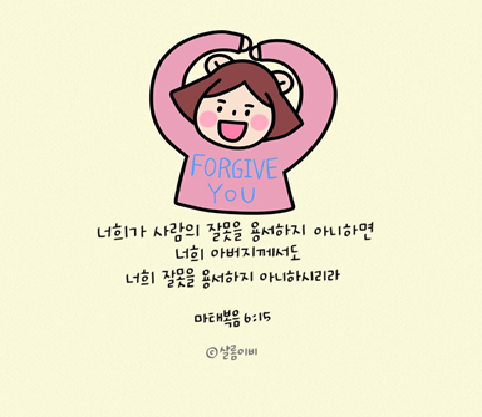 FORGIVE
YOU
너희가 사람의 잘못을 용서하지 아니하면
너희 아버지께서도
너희 잘못을 용서하지 아니하시리라
마태복음 6:15
©살롬이비